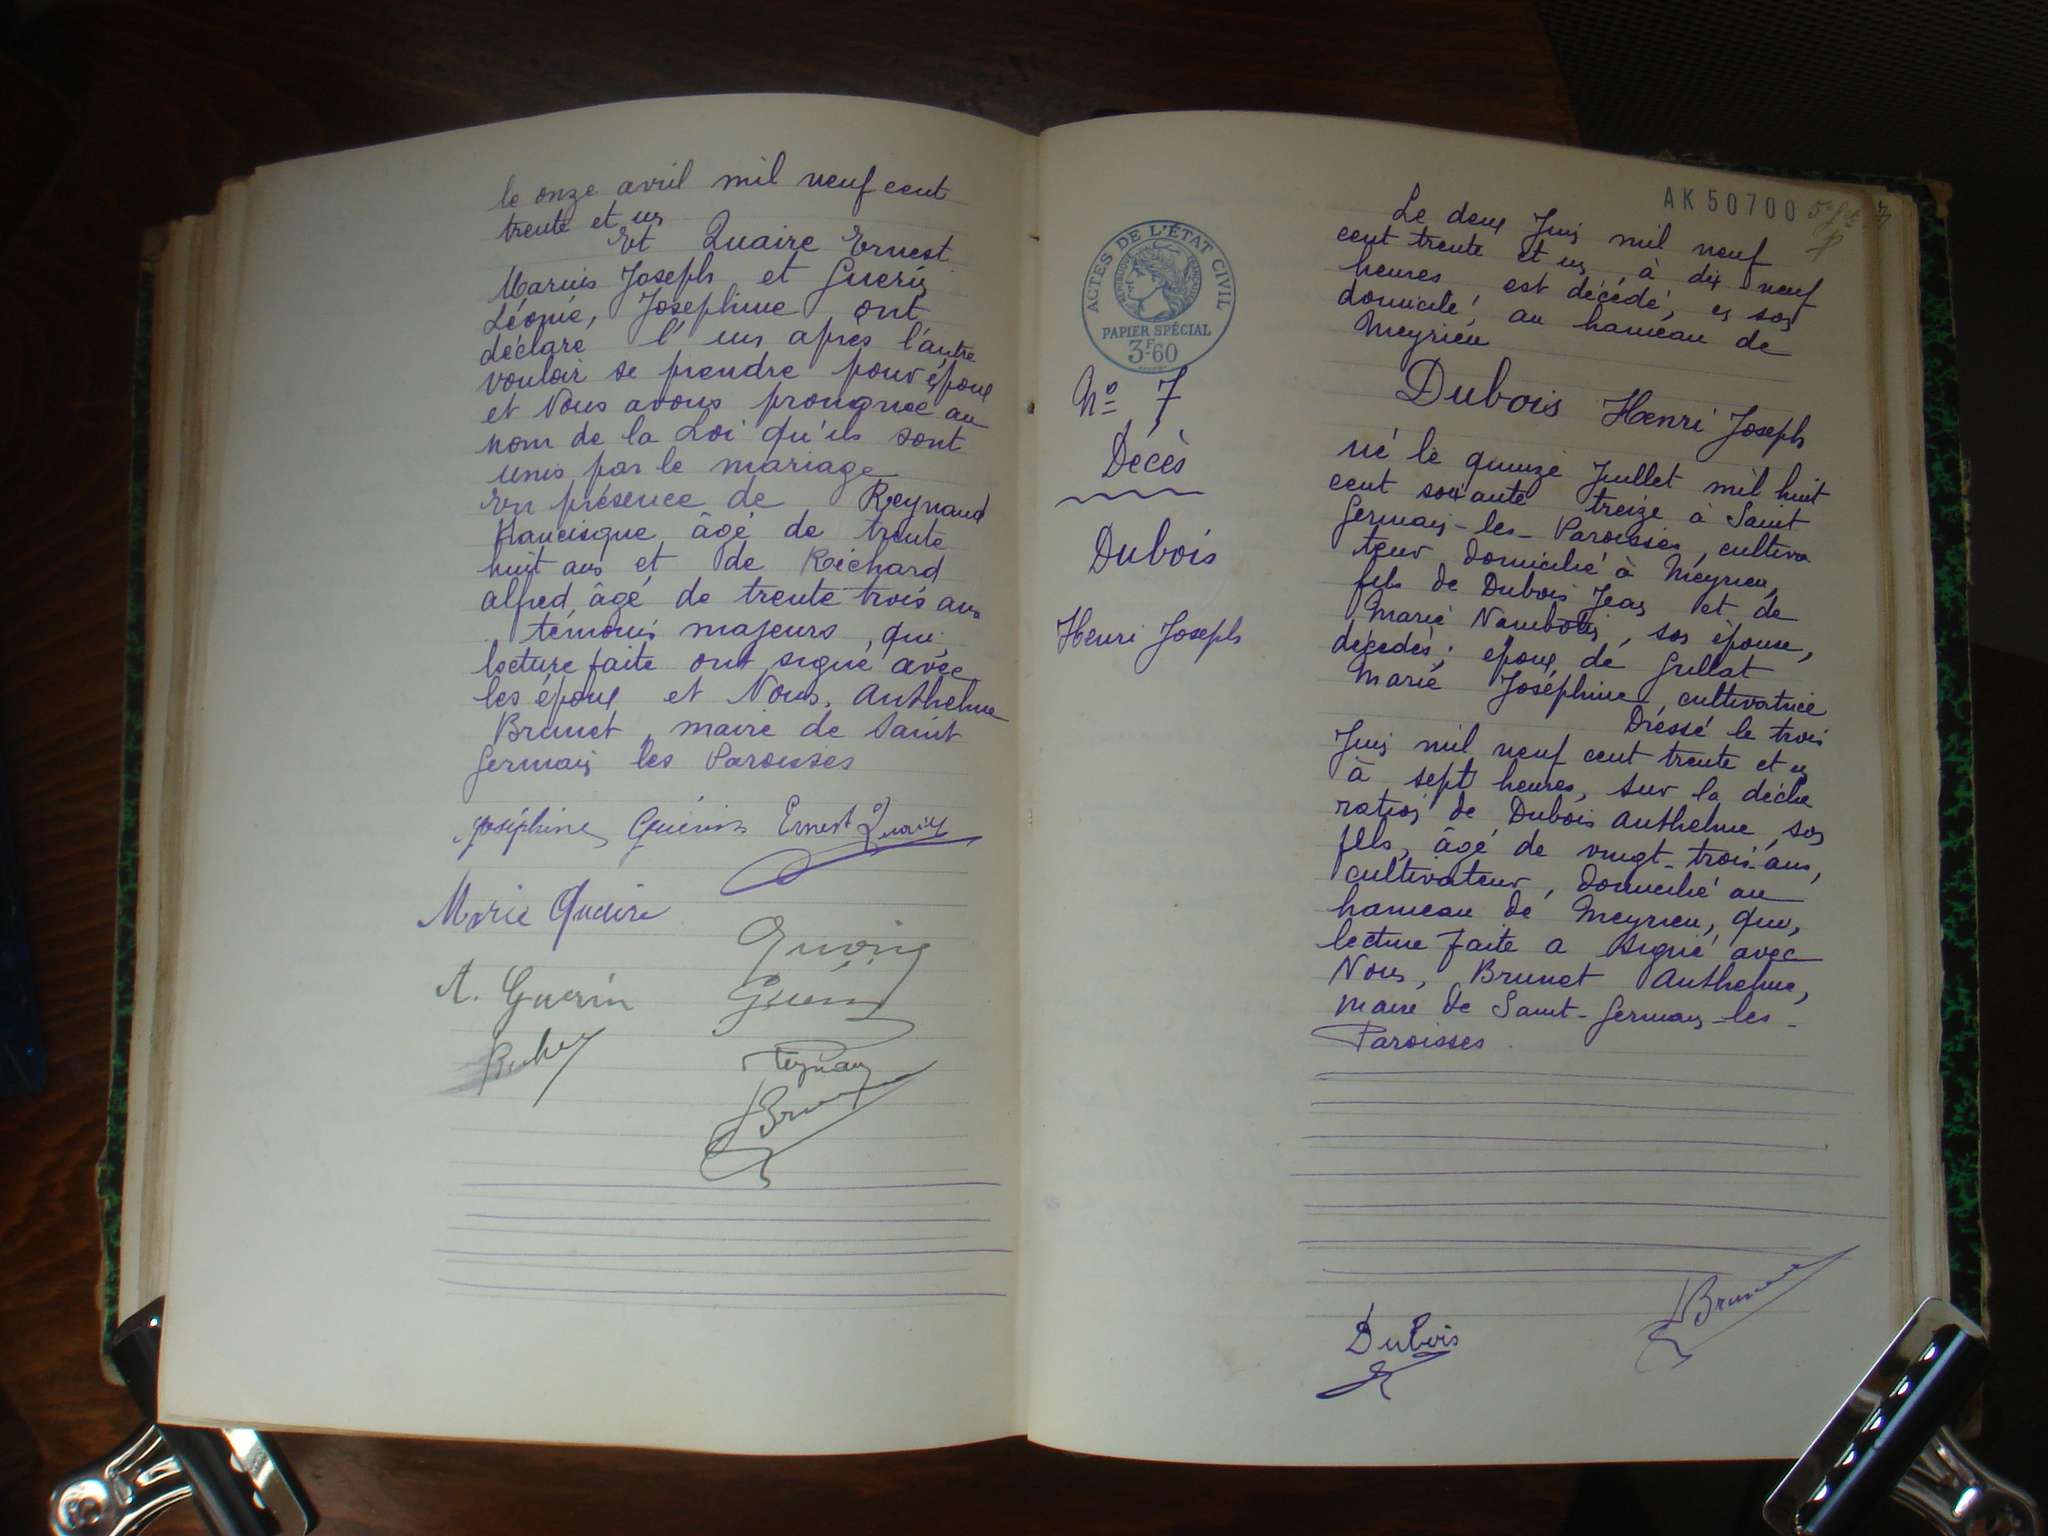 le onze avril mil neuf cent
trente et un
Et Quaire Ernest
Marius Joseph et Guerin
Léonie, Joséphine ont
déclaré l'un après l'autre
vouloir se prendre pour époux
et Nous avons prononcé au
nom de la Loi qu'ils sont
unis par le mariage
En présence de Reynaud
Francisque âgé de trente
huit ans et de Richard
alfred, âgé de trente trois ans
témoins majeurs, qui,
lecture faite ont signé avec
les époux et Nous, Anthelme
Brunet, maire de Saint
Germain les Paroisses
Joséphine Guérin Ernest Quaire
Marie Quaire
A. Guerin
Guérin
Reynaud
Brunet
AK 50700
ACTES DE L'ÉTAT CIVIL
RÉPUBLIQUE FRANÇAISE
PAPIER SPÉCIAL
3F60
No 7
Décès
Dubois
Henri Joseph
Le deux Juin mil neuf
cent trente et un à dix neuf
heures est décédé, en son
domicile, au hameau de
Meyrieu
Dubois Henri Joseph
né le quinze Juillet mil huit
cent soixante treize à Saint
Germain-les-Paroisses, cultiva
teur domicilié à Meyrieu,
fils de Dubois Jean et de
Marie, son épouse,
décédés; époux de Grillat
Marie Joséphine cultivatrice
Dressé le trois
Juin mil neuf cent trente et un
à sept heures, sur la décla
ration de Dubois Anthelme, son
fils, âgé de vingt-trois ans,
cultivateur, domicilié au
hameau de Meyrieu, qui,
lecture faite a signé avec
Nous, Brunet Anthelme,
maire de Saint-Germain-les-
Paroisses.
Dubois
Brunet